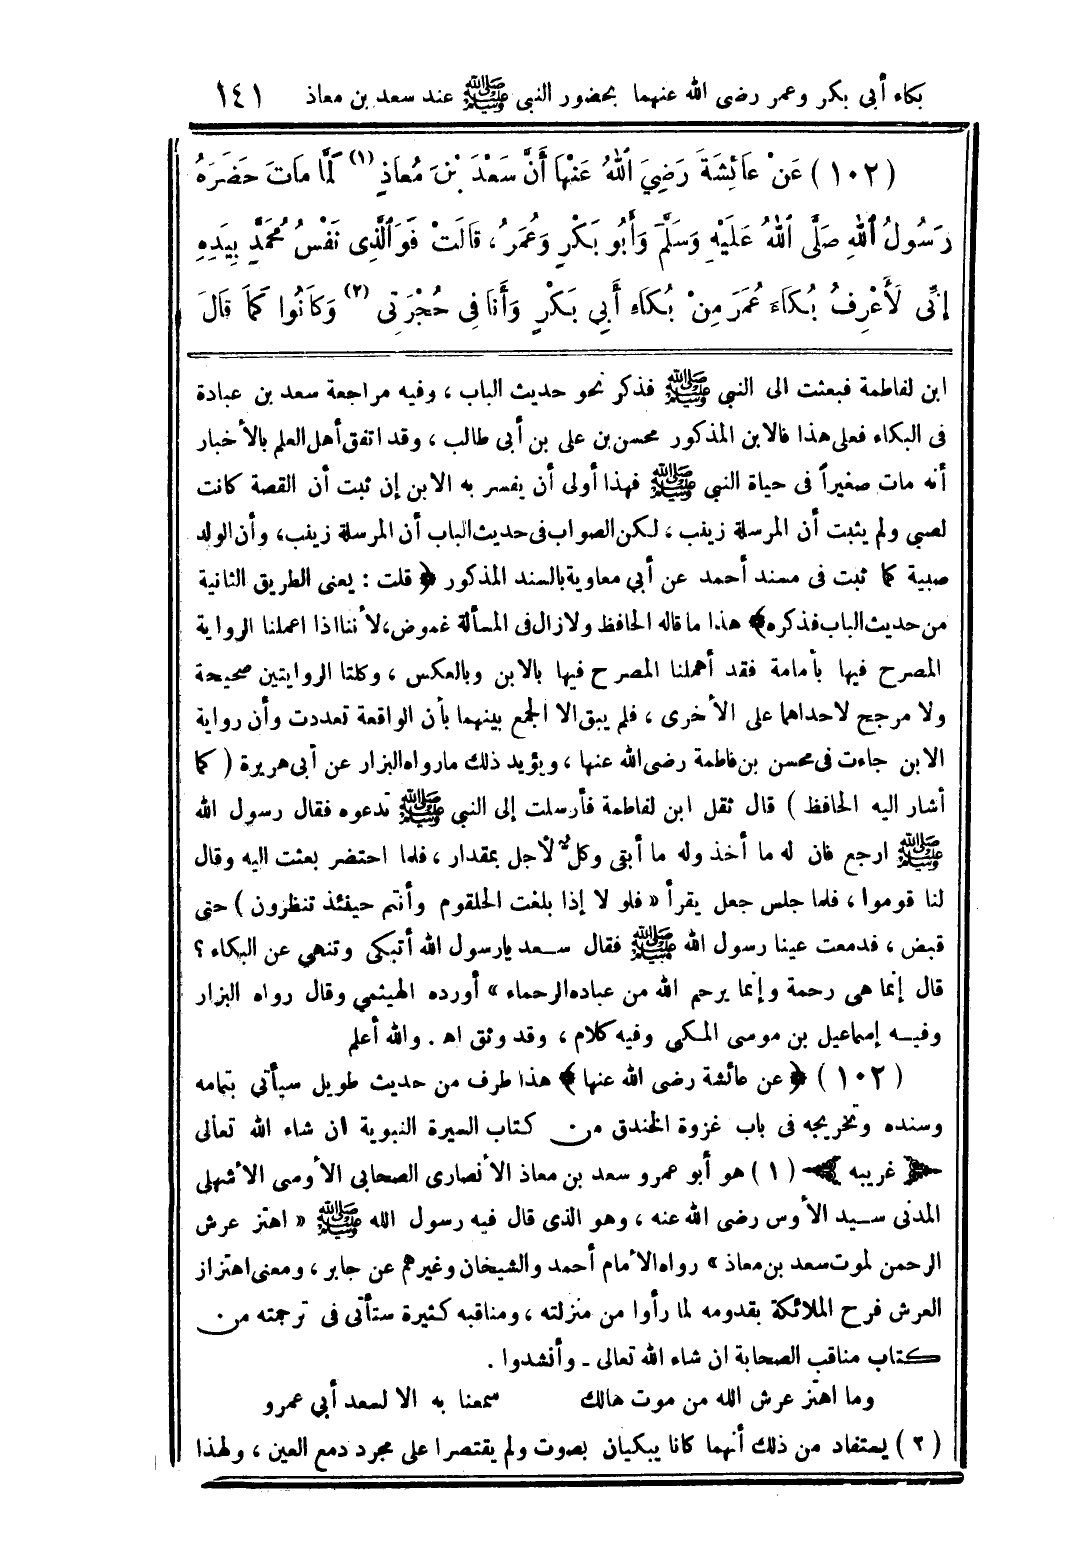 بكاء أبي بكر وعمر رضى الله عنهما بحضور النبي ﷺ عند سعد بن معاذ ١٤١
(١٠٢) عَنْ عَائِشَةَ رَضِيَ اللهُ عَنْهَا أَنَّ سَعْدَ بْنَ مُعَاذٍ (١) لَمَّا مَاتَ حَضَرَهُ
رَسُولُ اللهِ صَلَّى اللهُ عَلَيْهِ وَسَلَّمَ وَأَبُو بَكْرٍ وَعُمَرُ، قَالَتْ فَوَالَّذِى نَفْسُ مُحَمَّدٍ بِيَدِهِ
إِنِّى لَأَعْرِفُ بُكَاءَ عُمَرَ مِنْ بُكَاءِ أَبِي بَكْرٍ وَأَنَا فِى حُجْرَتِى (٢) وَكَانُوا كَمَا قَالَ
ابن لفاطمة فبعثت الى النبي ﷺ فذكر نحو حديث الباب ، وفيه مراجعة سعد بن عبادة
فى البكاء فعلى هذا فالابن المذكور محسن بن على بن أبى طالب ، وقد اتفق أهل العلم بالأخبار
أنه مات صغيراً فى حياة النبي ﷺ فهذا أولى أن يفسر به الابن إن ثبت أن القصة كانت
لصبي ولم يثبت أن المرسلة زينب ، لكن الصواب فى حديث الباب أن المرسلة زينب، وأن الولد
صبية كما ثبت فى مسند أحمد عن أبي معاوية بالسند المذكور ﴿ قلت : يعنى الطريق الثانية
من حديث الباب فذكره﴾ هذا ما قاله الحافظ ولازال فى المسألة غموض، لأننا اذا اعملنا الرواية
المصرح فيها بأمامة فقد أهملنا المصرح فيها بالابن وبالعكس ، وكلتا الروايتين صحيحة
ولا مرجح لاحداهما على الأخرى ، فلم يبق الا الجمع بينهما بأن الواقعة تعددت وأن رواية
الابن جاءت فى محسن بن فاطمة رضى الله عنها ، ويؤيد ذلك مارواه البزار عن أبى هريرة ( كما
أشار اليه الحافظ ) قال ثقل ابن لفاطمة فأرسلت إلى النبي ﷺ تدعوه فقال رسول الله
ﷺ ارجع فان له ما أخذ وله ما أبقى وكل لأجل بمقدار ، فلما احتضر بعثت اليه وقال
لنا قوموا ، فلما جلس جعل يقرأ « فلو لا إذا بلغت الحلقوم وأنتم حينئذ تنظرون ) حتى
قبض ، فدمعت عينا رسول الله ﷺ فقال سعد يارسول الله أتبكى وتنهي عن البكاء ؟
قال إنما هى رحمة وإنما يرحم الله من عباده الرحماء » أورده الهيثمي وقال رواه البزار
وفيه إسماعيل بن موسى المكي وفيه كلام ، وقد وثق اه . والله أعلم
(١٠٢) ﴿ عن عائشة رضى الله عنها ﴾ هذا طرف من حديث طويل سيأتي بتمامه
وسنده وتخريجه فى باب غزوة الخندق من كتاب السيرة النبوية ان شاء الله تعالى
﴿ غريبه ﴾ (١) هو أبو عمرو سعد بن معاذ الأنصارى الصحابى الأوسى الأشهلى
المدنى سيد الأوس رضى الله عنه ، وهو الذى قال فيه رسول الله ﷺ « اهتز عرش
الرحمن لموت سعد بن معاذ » رواه الأمام أحمد والشيخان وغيرهم عن جابر ، ومعنى اهتزاز
العرش فرح الملائكة بقدومه لما رأوا من منزلته ، ومناقبه كثيرة ستأتى فى ترجمته من
كتاب مناقب الصحابة ان شاء الله تعالى ـ وأنشدوا .
وما اهتز عرش الله من موت هالك سمعنا به الا لسعد أبي عمرو
(٢) يستفاد من ذلك أنهما كانا يبكيان بصوت ولم يقتصرا على مجرد دمع العين ، ولهذا